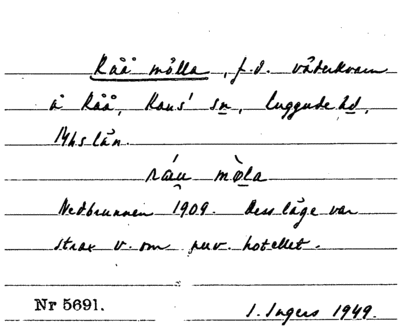 Råå mölla, f.d. väderkvarn
å Råå, Raus' sn, Luggude hd,
Mhs län.
ráu mòla
Nedbrunnen 1909. Dess läge var
strax v. om nuv. hotellet.
Nr 5691.
I. Ingers 1949.